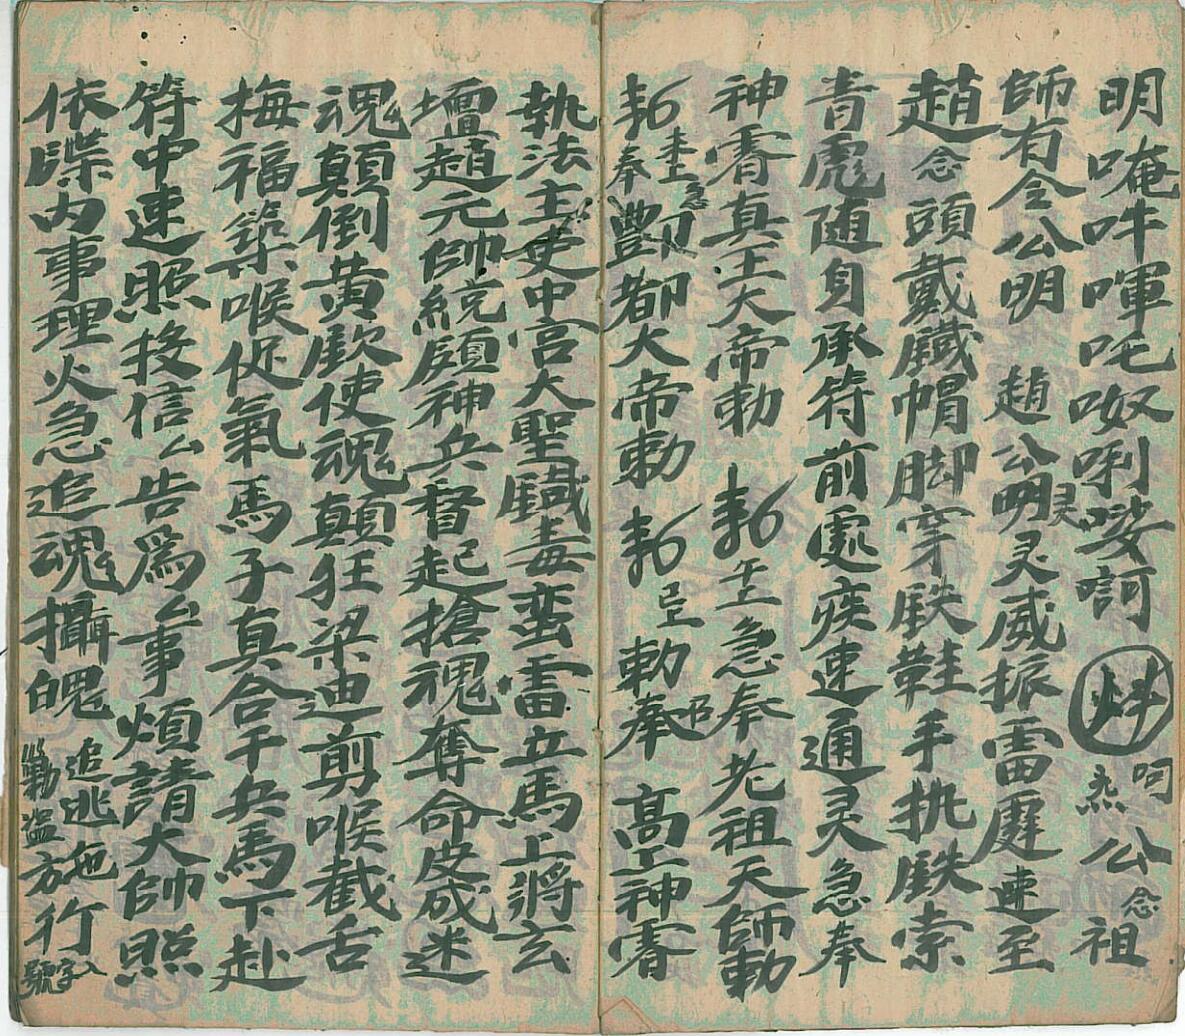 明唵吽㖷吒呶唎娑訶 呵 公念祖
師有令公明 趙公明灵灵威振雷霆速至
趙念頭戴鐵帽脚穿鉄鞋手执鉄索
青彪随身承符前處疾速通灵急奉
神霄真王大帝勅 急奉老祖天師勅
奉 酆都大帝勅 勅奉 高上神霄
執法主吏中宫大聖鐵毒蛮雷立馬上將玄
壇趙元帥統領神兵督起搶魂奪命皮成迷
魂顛倒黄欽使魂顛狂梁迪剪喉截舌
梅福築喉促氣馬子真合千兵馬下赴
符中速照投信厶告爲厶事煩請大帥照
依牒内事理火急追魂攝魄 追逃 施 盜方行 入字號